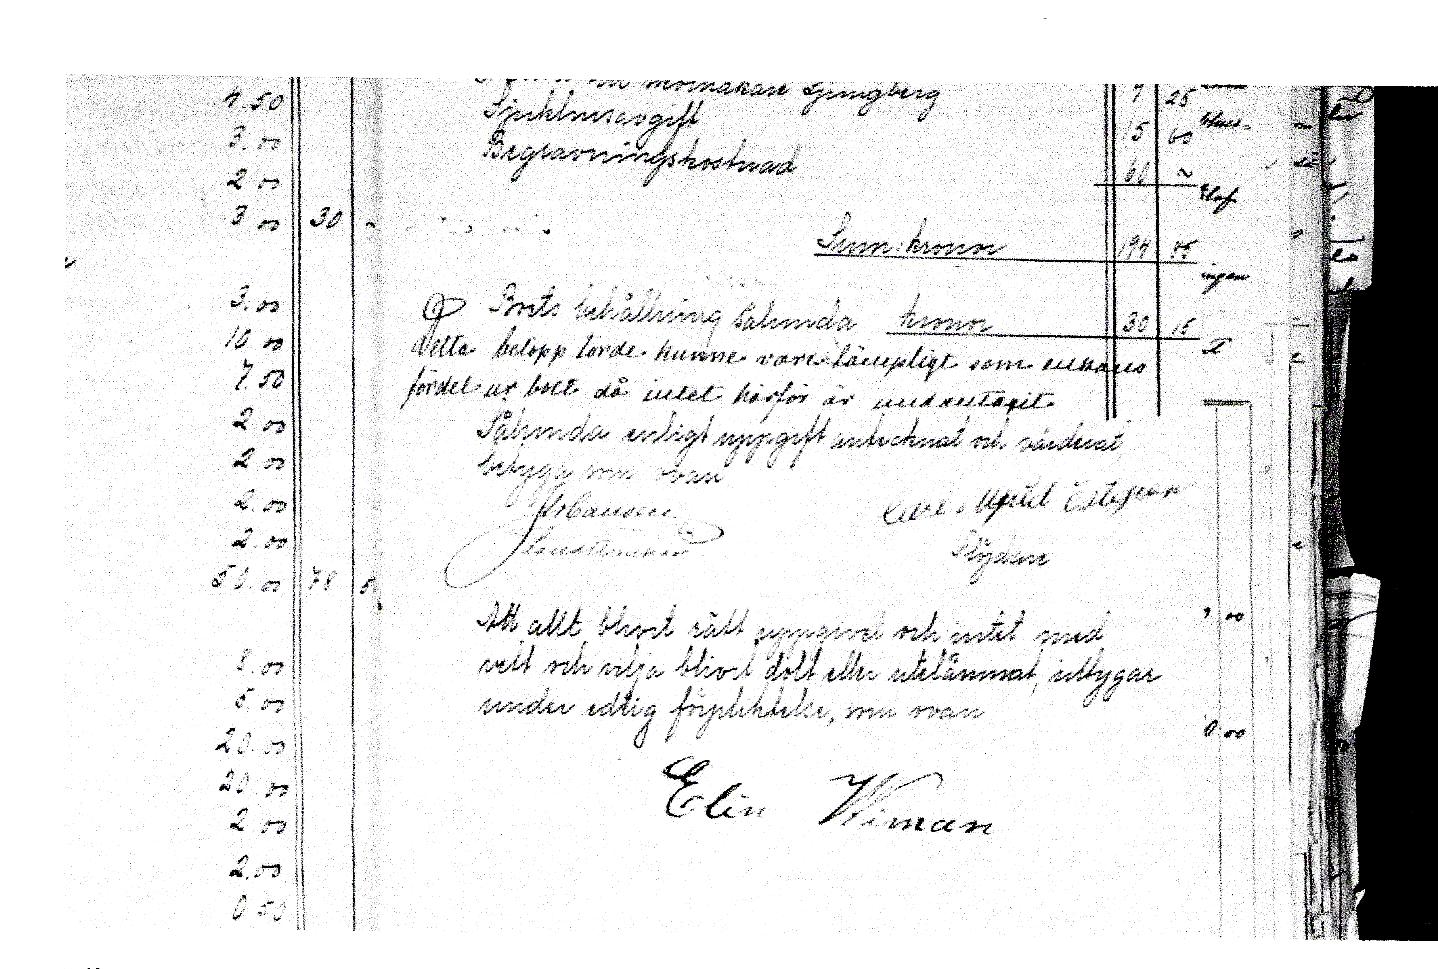 4.50
3.00
2 00
3 00 30 -
3.00
10 00
7.50
2 00
2 00
2.00
2.00
50.00 78 5
8.00
5.00
20.00
20.00
2 00
2.00
0.50
Ljungberg 7 25
Sjukhusavgift 15 60
Begravningskostnad 60 ~
Sum. kronor 194 85
Boets behållning Sålunda kronor 30 15
Detta belopp torde kunna vara lämpligt som enkans
fördel ur boet då intet härför är undantagit.
Sålunda enligt uppgift antecknat och värderat
betyga som ovan
Carl August
Att allt blivit rätt uppgivet och intet med
vett och vilja blivit dolt eller utelämnat, intygar
under edlig förpliktelse, som ovan
Elin Wiman
ingen
0.00